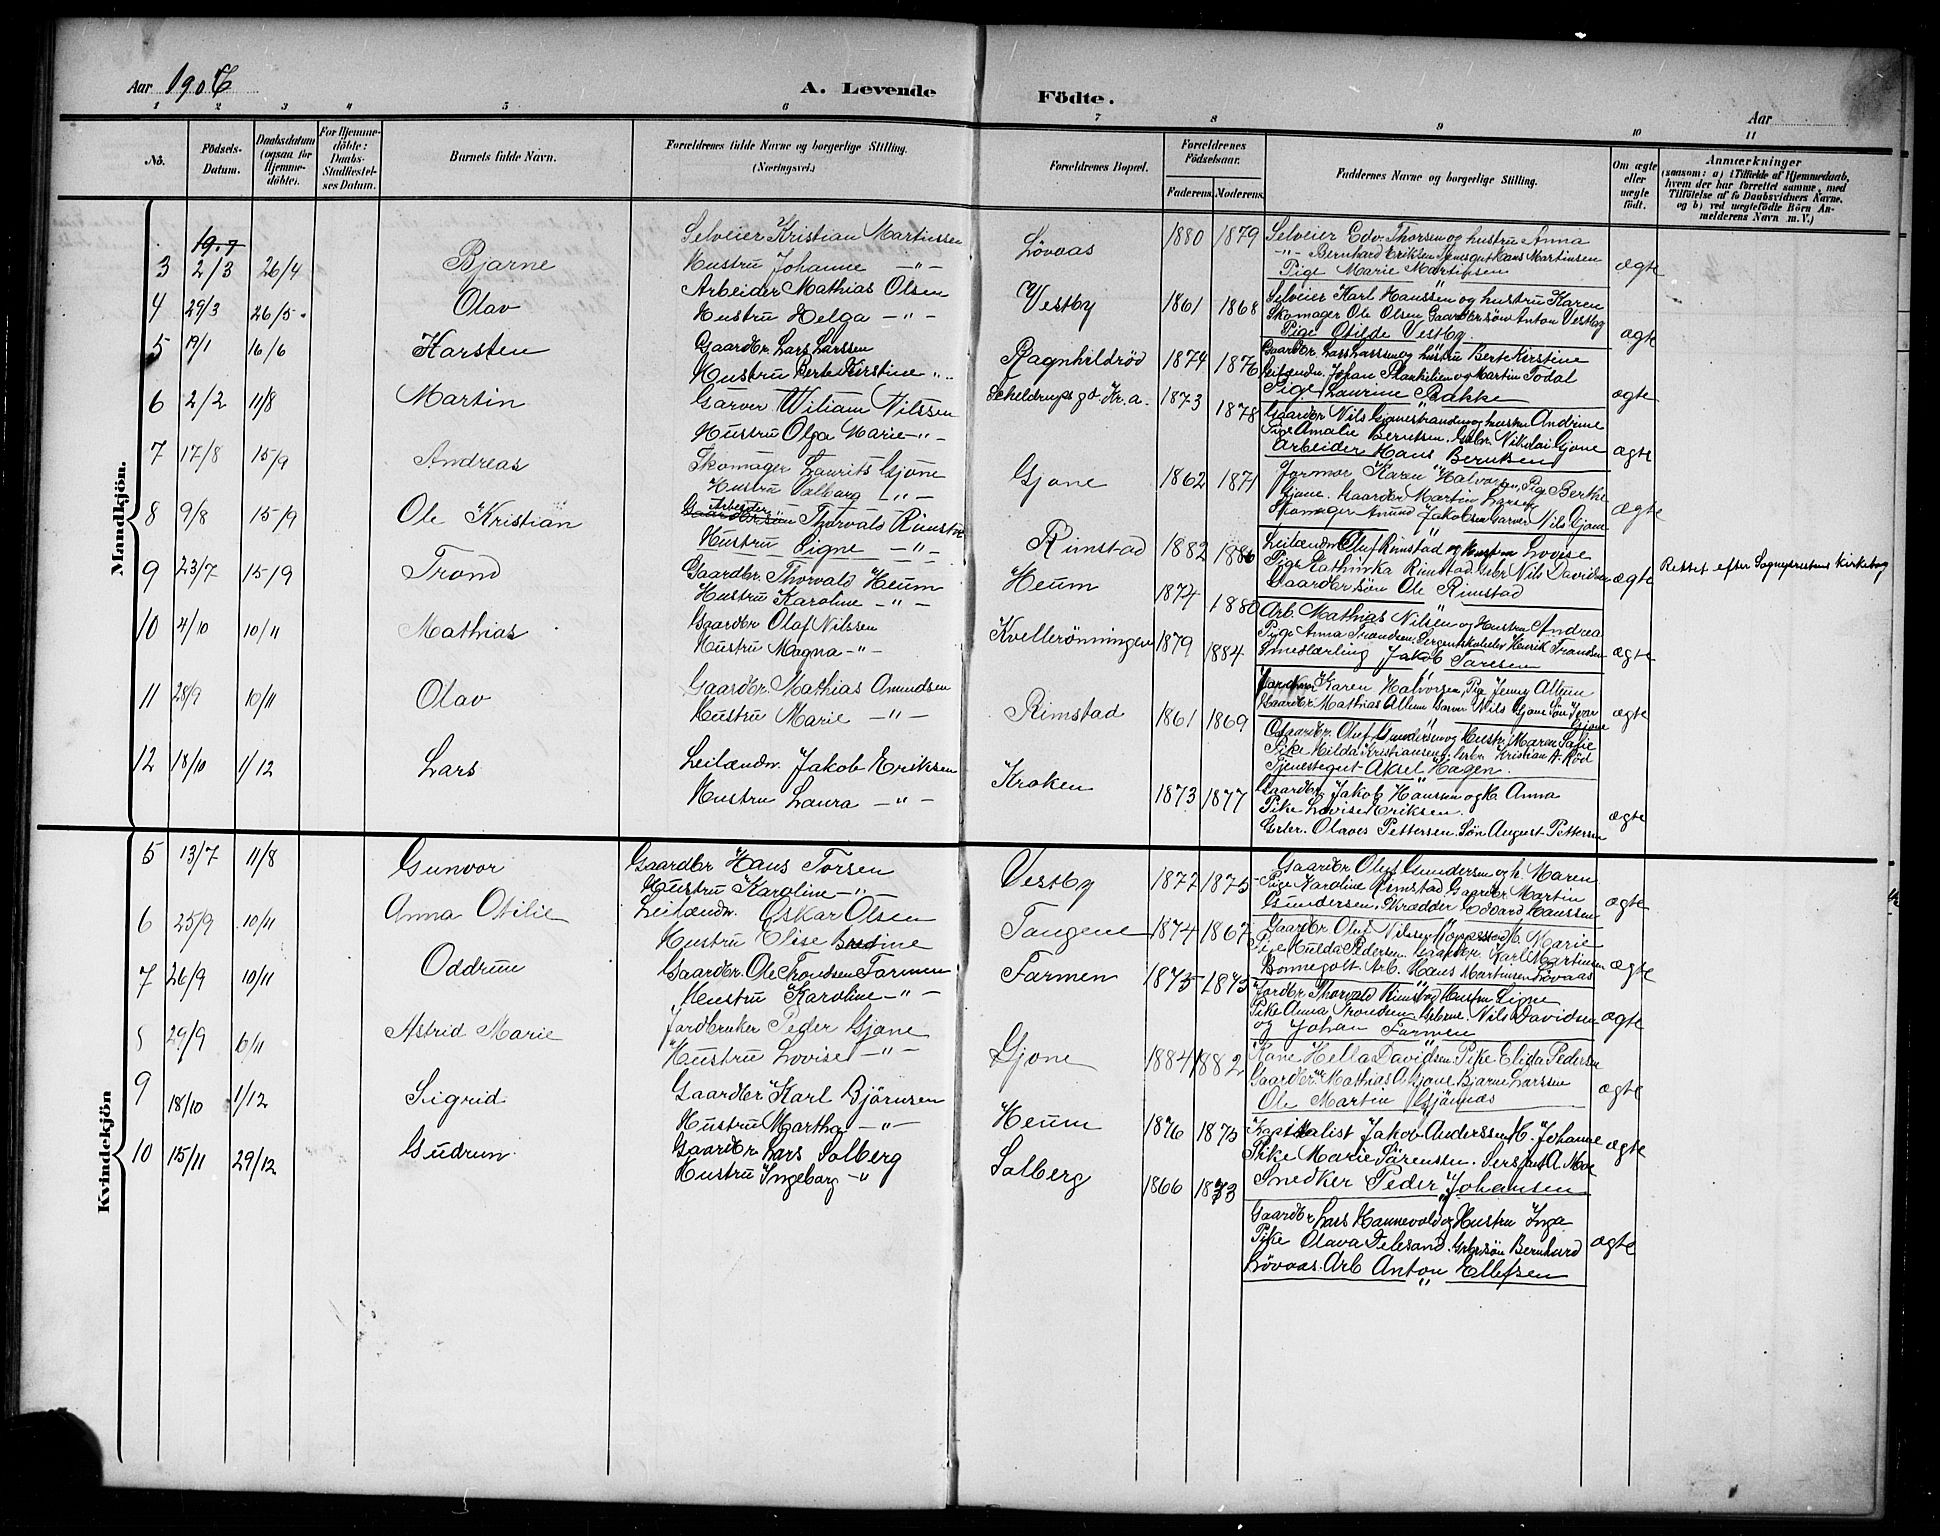 Aar 1906
A. Levende
Födte.
Aar
1 2 3 4 5 6 7 8 9 10 11
No.
Födsels-Datum.
Daabsdatum (ogsaa for Hjemme-döbte).
For Hjemme-döbte: Daabs-Stadfæstel-ses Datum.
Barnets fulde Navn.
Forældrenes fulde Navne og borgerlige Stilling. (Næringsvei.)
Forældrenes Bopæl.
Forældrenes Födselsaar.
Faderens. Moderens.
Faddernes Navne og borgerlige Stilling.
Om ægte eller uægte födt.
Anmærkninger
(saasom: a) i Tilfælde af Hjemmedaab, hvem der har forrettet samme, med Tilföielse af to Daabsvidners Navne, og b) ved uægtefödte Börn An-melderens Navn m. V.)
Mandkjön.
19.7
3 2/3 26/4 Bjarne Selveier Kristian Martinssen Lövaas 1880 1879 Selveier Edv. Thorsen og hustru Anna
Hustru Johanne —"— —"— Bernhard Eriksen Tjenesgut Hans Martinsen
Pige Marie Martinsen ægte
4 29/3 26/5 Olav Arbeider Mathias Olsen Vestby 1861 1868 Selveier Karl Hanssen og hustru Karen
Hustru Helga —"— Skomager Ole Olsen Gaardbrsön Anton Vestby
Pige Otilde Vestby ægte
5 19/1 16/6 Karsten Gaardbr. Lars Larssen Ragnhildröd 1874 1876 Gaardbr. Lars Larssen og hustru Berte Kirstine
Hustru Berte Kirstine —"— Leilændn. Johan Plankelien og Martin Todal
Pige Laurine Bakke ægte
6 2/2 11/8 Martin Garver Wiliam Nilssen Scheldrupsgd. Kr.a. 1873 1878 Gaardbr Nils Gjonestranden og hustru Andrine
Hustru Olga Marie —"— Pige Amalie Berntsen. Gbr. Nikolai Gjone
Arbeider Hans Berntsen ægte
7 17/8 15/9 Andreas Skomager Laurits Gjone Gjone 1862 1871 Jormor Karen Halvorsen, Pige Berthe
Hustru Valborg —"— Gjone. Gaardbr Martin Larsen
Skomager Amund Jakobsen Garver Nils Gjone ægte
8 9/8 15/9 Ole Kristian Gaardbrsön Arbeider Thorvald Rimstad Rimstad 1882 1886 Leilændn Oluf Rimstad og Hustru Lovise
Hustru Signe —"— Pige Kathinka Rimstad. Gbr. Nils Davidsen
Gaardbrsön Ole Rimstad ægte Rettet efter Sogneprestens Kirkebog
9 23/7 15/9 Trond Gaardbr. Thorvald Heum Heum 1874 1880 Arb. Mathias Nilsen og Hustru Andrea
Hustru Karoline —"— Pige Anna Trondsen, Sergentskoleelev Henrik Trondsen
Smedlærling Jakob Taresen ægte
10 4/10 10/11 Mathias Gaardbr Olaf Nilssen Kvellerönningen 1879 1884 Jordmor Karen Halvorsen, Pige Jenny Allum
Hustru Magna —"— Gaardbr Mathias Allum Garver Nils Gjone Sön Iver Gjone ægte
11 28/9 10/11 Olav Gaardbr. Mathias Amundsen Rimstad 1861 1869 Gaardbr. Oluf Gundersen og Hustr. Maren Sofie
Hustru Marie —"— Pike Hilda Kristiansen, Gbr. Kristian A. Röd
Tjenestegut Aksel Hagen.
12 18/10 1/12 Lars Leilændn. Jakob Eriksen Kroken 1873 1877 Gaardbr. Jakob Hanssen og H. Anna
Hustru Laura —"— Pike Lovise Eriksen.
Gbr. Olaves Pettersen. Sön August Pettersen ægte
Kvindekjön
5 13/7 11/8 Gunvor Gaardbr Hans Torsen Vestby 1872 1875 Gaardbr Oluf Gundersen og h. Maren
Hustru Karoline —"— Pige Karoline Rimstad Gaardbr Martin
Gundersen, Skrædder Edvard Hanssen ægte
6 25/9 10/11 Anna Otilie Leilændn. Oskar Olsen Tangene 1874 1867 Gaardbr Oluf Nilssen H. Marie
Hustru Elise Bredine Pige Hulda Pedersen. Gaardbr. Karl Martinsen
Bonnegolt Arb. Hans Martinsen Lövaas ægte
7 26/9 10/11 Oddrun Gaardbr. Ole Trondsen Farmen Farmen 1875 1875 Jordbr Thorvald Rimstad Hustru Signe
Hustru Karoline —"— Pike Anna Trondsen. Gbrne. Nils Davidsen
og Johan Farmen ægte
8 29/9 6/11 Astrid Marie Jordbruker Peder Gjone Gjone 1884 1882 Kone Hella Davidsen. Pike Elida Pedersen
Hustru Lovise —"— Gaardbr. Mathias A. Gjone, Bjarne Larssen
Ole Martin Gjönnes ægte
9 18/10 1/12 Sigrid Gaardbr Karl Björnsen Heum 1876 1875 Kapitalist Jakob Anderssen H. Johanne
Hustru Martha —"— Pike Marie Sörensen. Sersjant A. Moe
Snedker Peder Johansen ægte
10 15/11 29/12 Gudrun Gaardbr Lars Solberg Solberg 1866 1873 Gaardbr Lars Hannevold og Hustru Inga
Hustru Ingeborg —"— Pike Olava Delesand. Gbrsön Bernhard
Lövaas. Arb Anton Ellefsen ægte